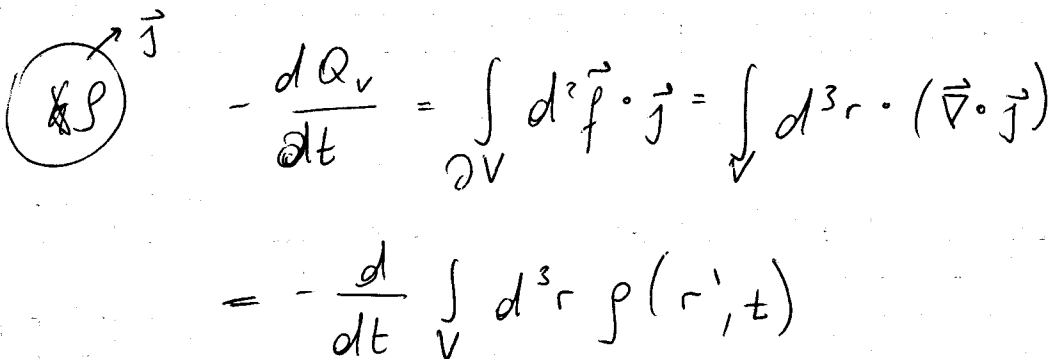 ρ $\vec{j}$ $-\frac{dQ_v}{dt} = \int_{\partial V} d^2\vec{f} \cdot \vec{j} = \int_V d^3r \cdot (\vec{\nabla} \cdot \vec{j})$
$= -\frac{d}{dt} \int_V d^3r \, \rho(r', t)$